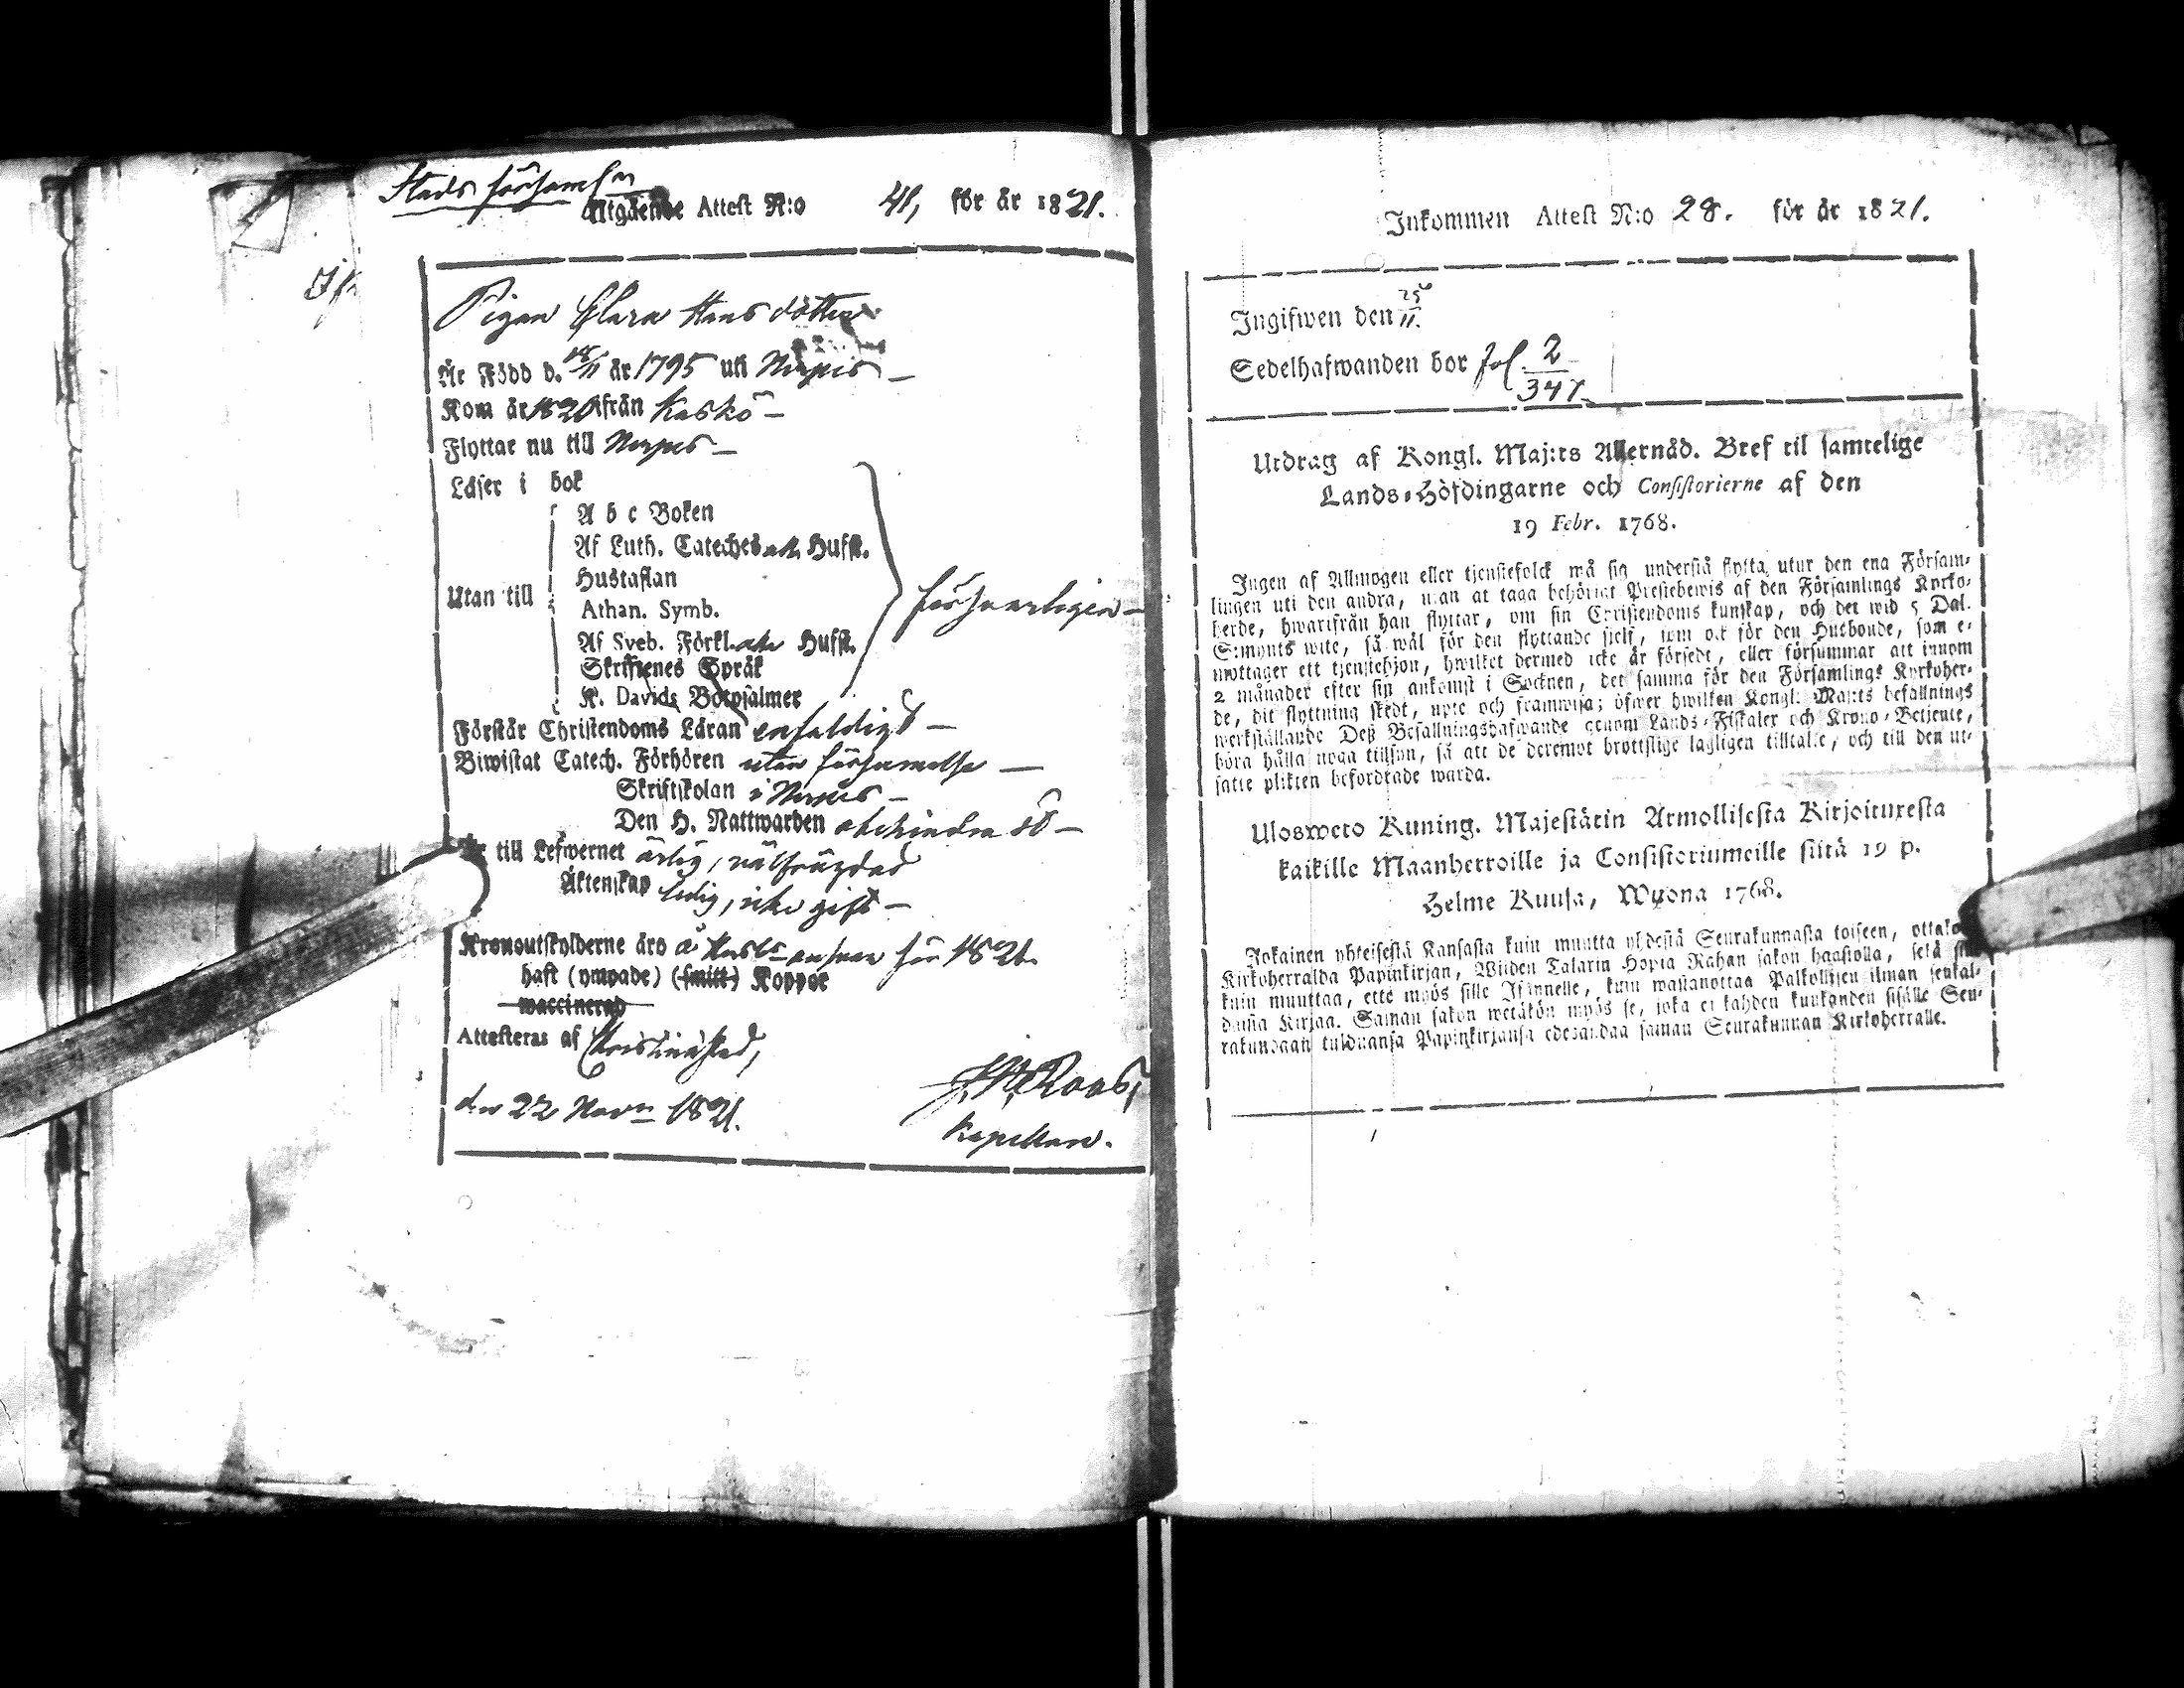 Stads församln
Utgående Attest N:o 41, för år 1821.
Pigan Clara Hansdotter
Är Född d. 18/11 år 1795 uti Nerpes
Kom år 1820 ifrån Kaskö
Flyttar nu till Nerpes
Läser i bok
A b c Boken
Af Luth. Cateches Hufst.
Hustaflan
Utan till
Athan. Symb.
försvarligen
Af Sveb. Förkl. Hufst.
Skriftenes Språk
K. Davids Botpsalmer
Förstår Christendoms Läran enfaldigt
Biwistat Catech. Förhören utan försummelse
Skriftskolan i Nerpes
Den H. Nattwarden obehindrad
Är till Lefwernet ärlig, välfrägdad
Äktenskap ledig, icke gift
Kronoutskylderne äro å för 1821.
haft (ympade) (smitt-) Koppor
waccinerad
Attesteras af Christinestad,
den 22 Novr 1821.
Roos,
Kapellan.
Inkommen Attest N:o 28. för år 1821.
Ingifwen den 25/11.
Sedelhafwanden bor fol. 2/347
Utdrag af Kongl. Maj:ts Allernåd. Bref til samtelige
Lands-Höfdingarne och Consistorierne af den
19 Febr. 1768.
Ingen af Allmogen eller tjenstefolck må sig understå flytta utur den ena Försam-
lingen uti den andra, utan at taga behörigt Prestebewis af den Församlings Kyrko-
herde, hwarifrån han flyttar, om sin Christendoms kunskap, och det wid 5 Dal.
S:mynts wite, så wäl för den flyttande sielf, som ock för den Husbonde, som e-
mottager ett tjenstehjon, hwilket dermed icke är försedt, eller försummar att innom
2 månader efter sin ankomst i Socknen, det samma för den Församlings Kyrkoher-
de, dit flyttning skedt, upte och framwisa; öfwer hwilken Kongl. Maj:ts befallnings
werkställande Deß Befallningshafwande genom Lands-Fiskaler och Krono-Betjente,
böra hålla noga tillsyn, så att de deremot brottslige lagligen tilltalte, och till den ut-
satte plikten befordrade warda.
Ulosweto Kuning. Majestätin Armollisesta Kirjoituxesta
kaikille Maanherroille ja Consistoriumeille siitä 19 p.
Helme Kuusa, Wuona 1768.
Jokainen yhteisestä Kansasta kuin muutta yhdestä Seurakunnasta toiseen, ottako
Kirkoherralda Papinkirjan, Wiiden Talarin Hopia Rahan sakon haastolla, sekä se
kuin muuttaa, että myös sille Isännelle, kuin wastanottaa Palkollisen ilman senkal-
daista Kirjaa. Saman sakon wetäkön myös se, joka ei kahden kuukauden sisälle Seu-
rakundaan tulduansa Papinkirjansa edesandaa saman Seurakunnan Kirkoherralle.